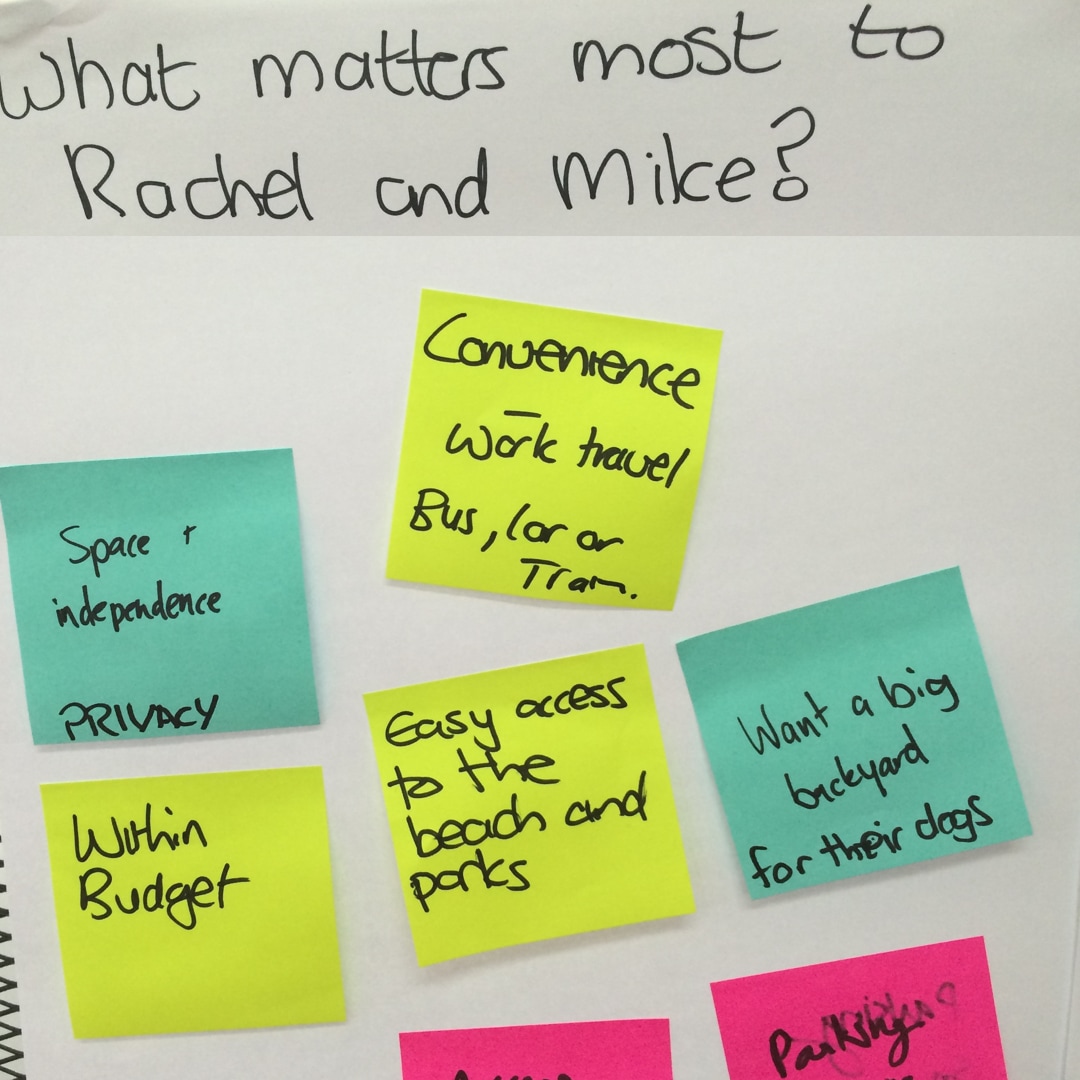 What matters most to
Rachel and Mike?
Convenience
– work travel
Bus, Car or
Tram.
Space +
independence
PRIVACY
Easy access
to the
beach and
parks
Want a big
backyard
for their dogs
Within
Budget
Parking